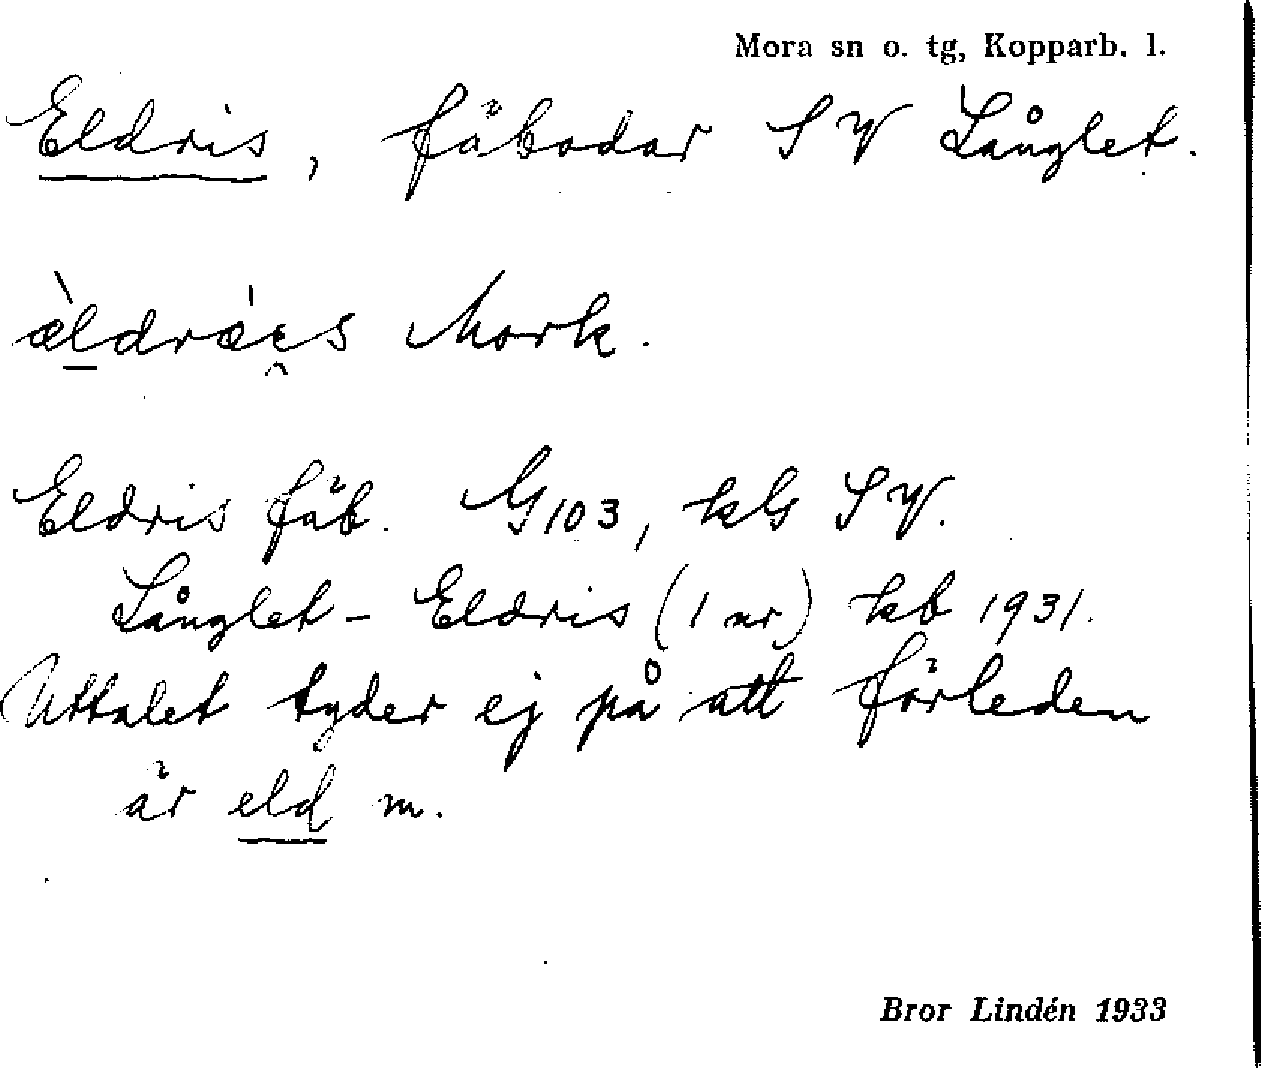 Mora sn o. tg, Kopparb. l.
Eldris, fäbodar SV Långlet.
æ̀ldræ̀e̯s Mork.
Eldris fäb. G103, kG SV.
Långlet - Eldris (1 nr) kb 1931.
Uttalet tyder ej på att förleden
är eld m.
Bror Lindén 1933